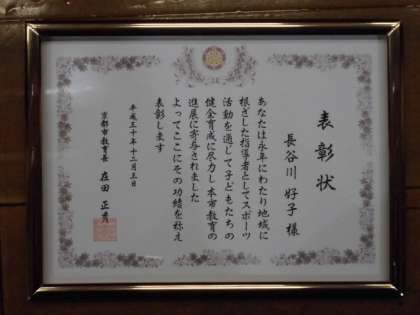 表彰状
長谷川 好子 様
あなたは永年にわたり地域に
根ざした指導者としてスポーツ
活動を通じて子どもたちの
健全育成に尽力し本市教育の
進展に寄与されました
よってここにその功績を称え
表彰します
平成三十年十二月三日
京都市教育長 在田 正秀